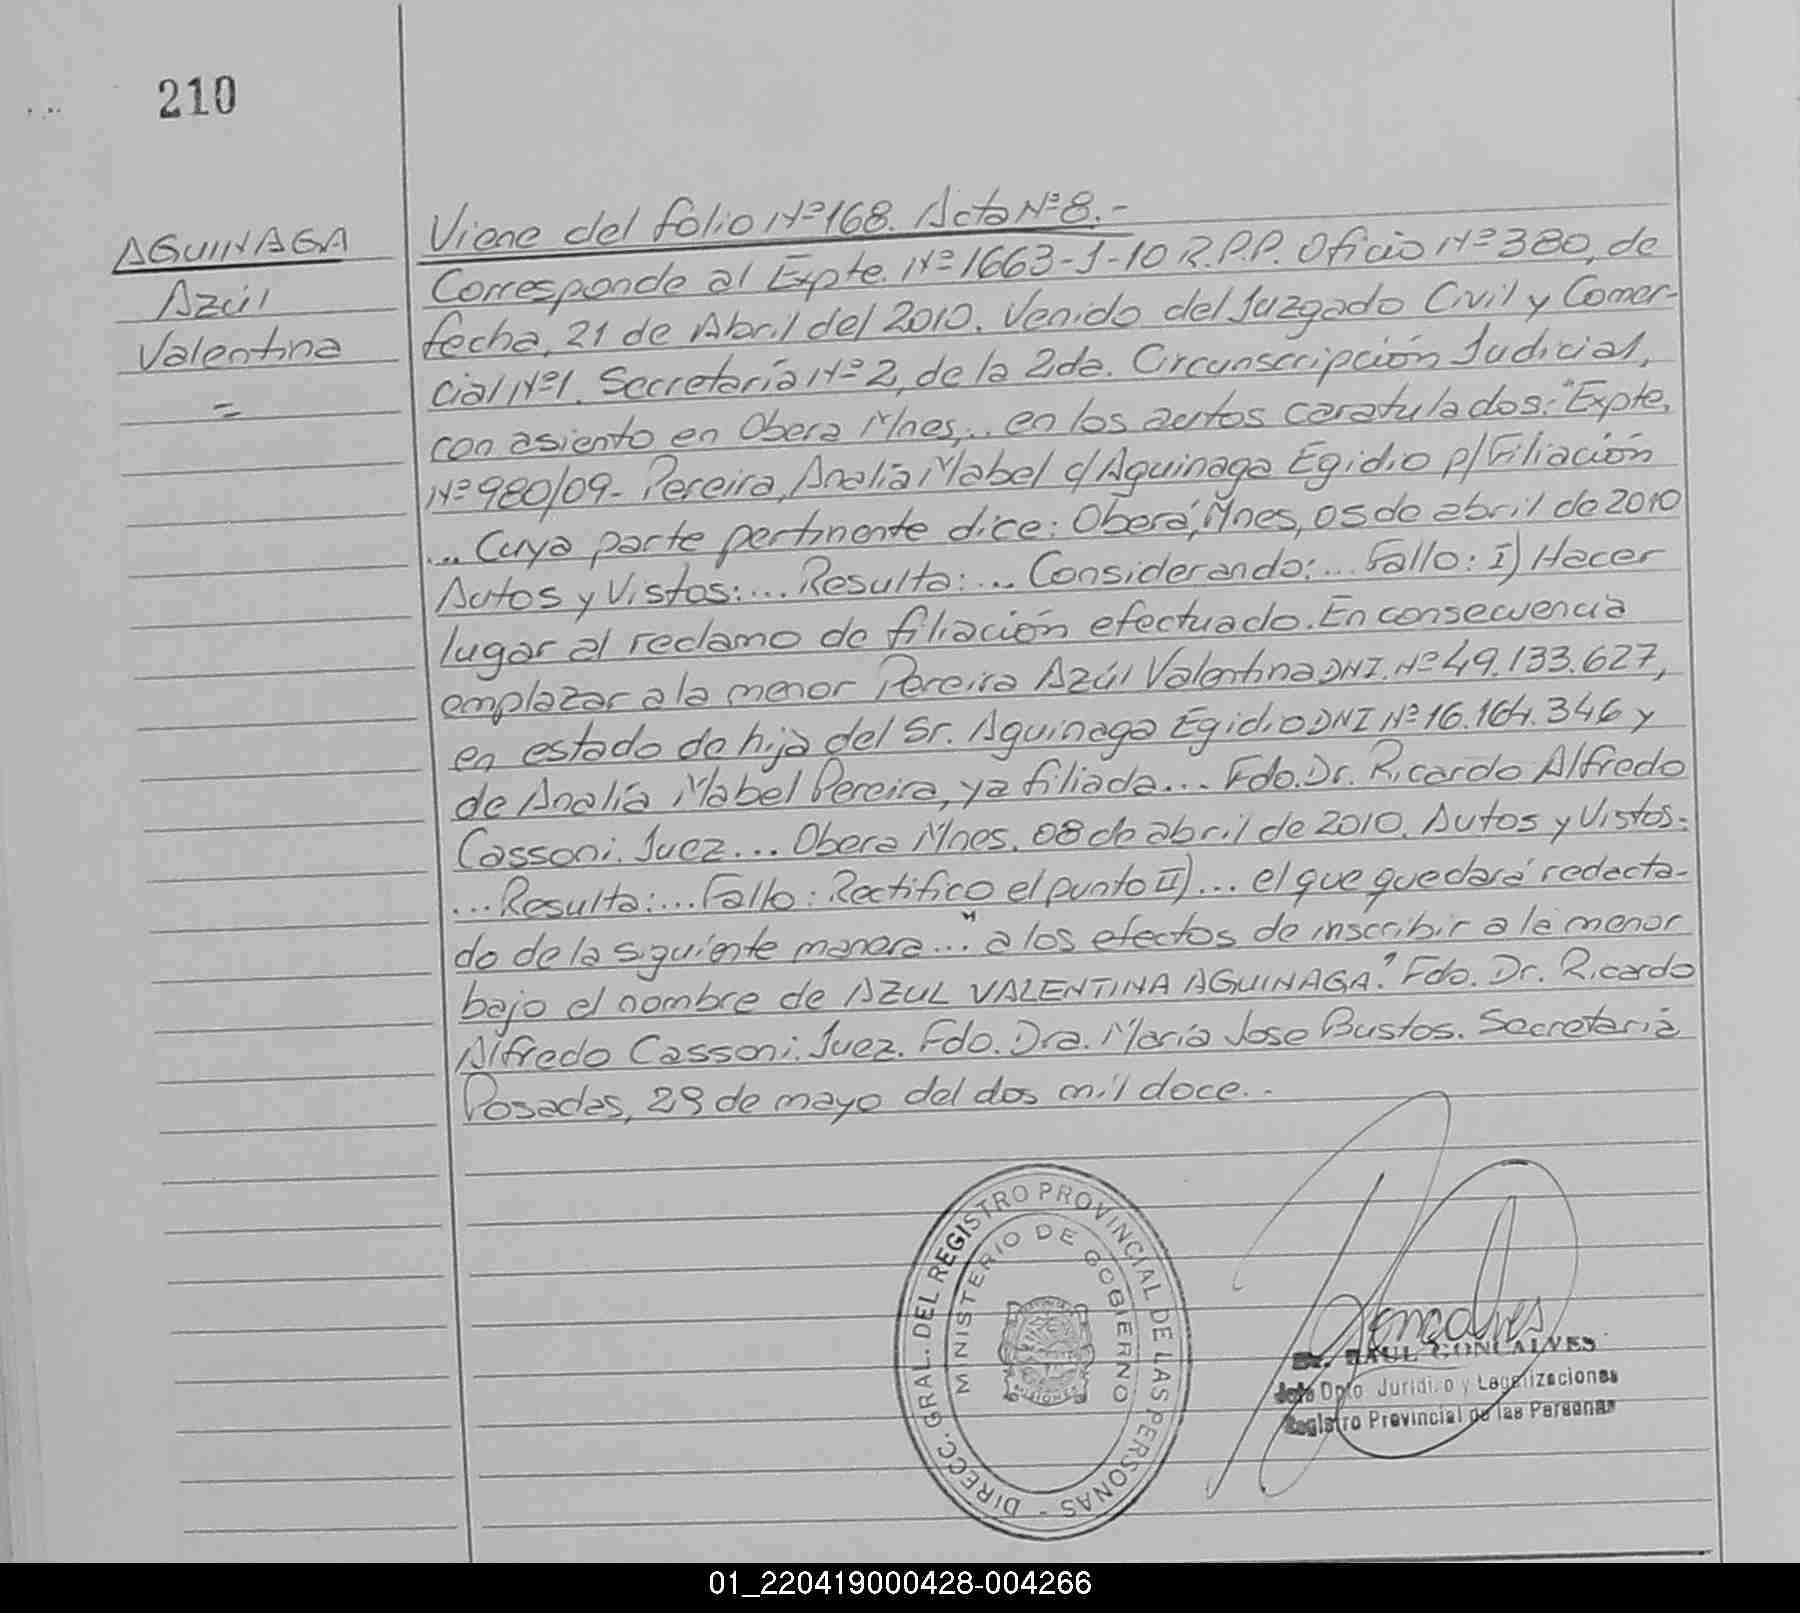 210
AGUINAGA
Azúl
Valentina
=
Viene del folio Nº 168. Acta Nº 8.-
Corresponde al Expte. Nº 1663-J-10 R.P.P. Oficio Nº 380, de
fecha, 21 de Abril del 2010. Venido del Juzgado Civil y Comer-
cial Nº 1. Secretaría Nº 2, de la 2da. Circunscripción Judicial,
con asiento en Obera Mnes,.. en los autos caratulados: "Expte.
Nº 980/09- Pereira, Analía Mabel c/ Aguinaga Egidio p/ Filiación
... Cuya parte pertinente dice: Oberá, Mnes, 05 de abril de 2010
Autos y Vistos:... Resulta:... Considerando:... Fallo: I) Hacer
lugar al reclamo de filiación efectuado. En consecuencia
emplazar a la menor Pereira Azúl Valentina DNI. Nº 49.133.627,
en estado de hija del Sr. Aguinaga Egidio DNI Nº 16.164.346 y
de Analía Mabel Pereira, ya filiada... Fdo. Dr. Ricardo Alfredo
Cassoni. Juez... Obera Mnes. 08 de abril de 2010. Autos y Vistos:
...Resulta:... Fallo: Rectifico el punto II)... el que quedará redacta-
do de la siguiente manera..." a los efectos de inscribir a la menor
bajo el nombre de AZUL VALENTINA AGUINAGA." Fdo. Dr. Ricardo
Alfredo Cassoni. Juez. Fdo. Dra. María Jose Bustos. Secretaria
Posadas, 29 de mayo del dos mil doce..
DIRECC. GRAL. DEL REGISTRO PROVINCIAL DE LAS PERSONAS -
MINISTERIO DE GOBIERNO
MISIONES
Goncalves
Dr. RAUL GONCALVES
Jefe Dpto. Jurídico y Legalizaciones
Registro Provincial de las Personas
01_220419000428-004266